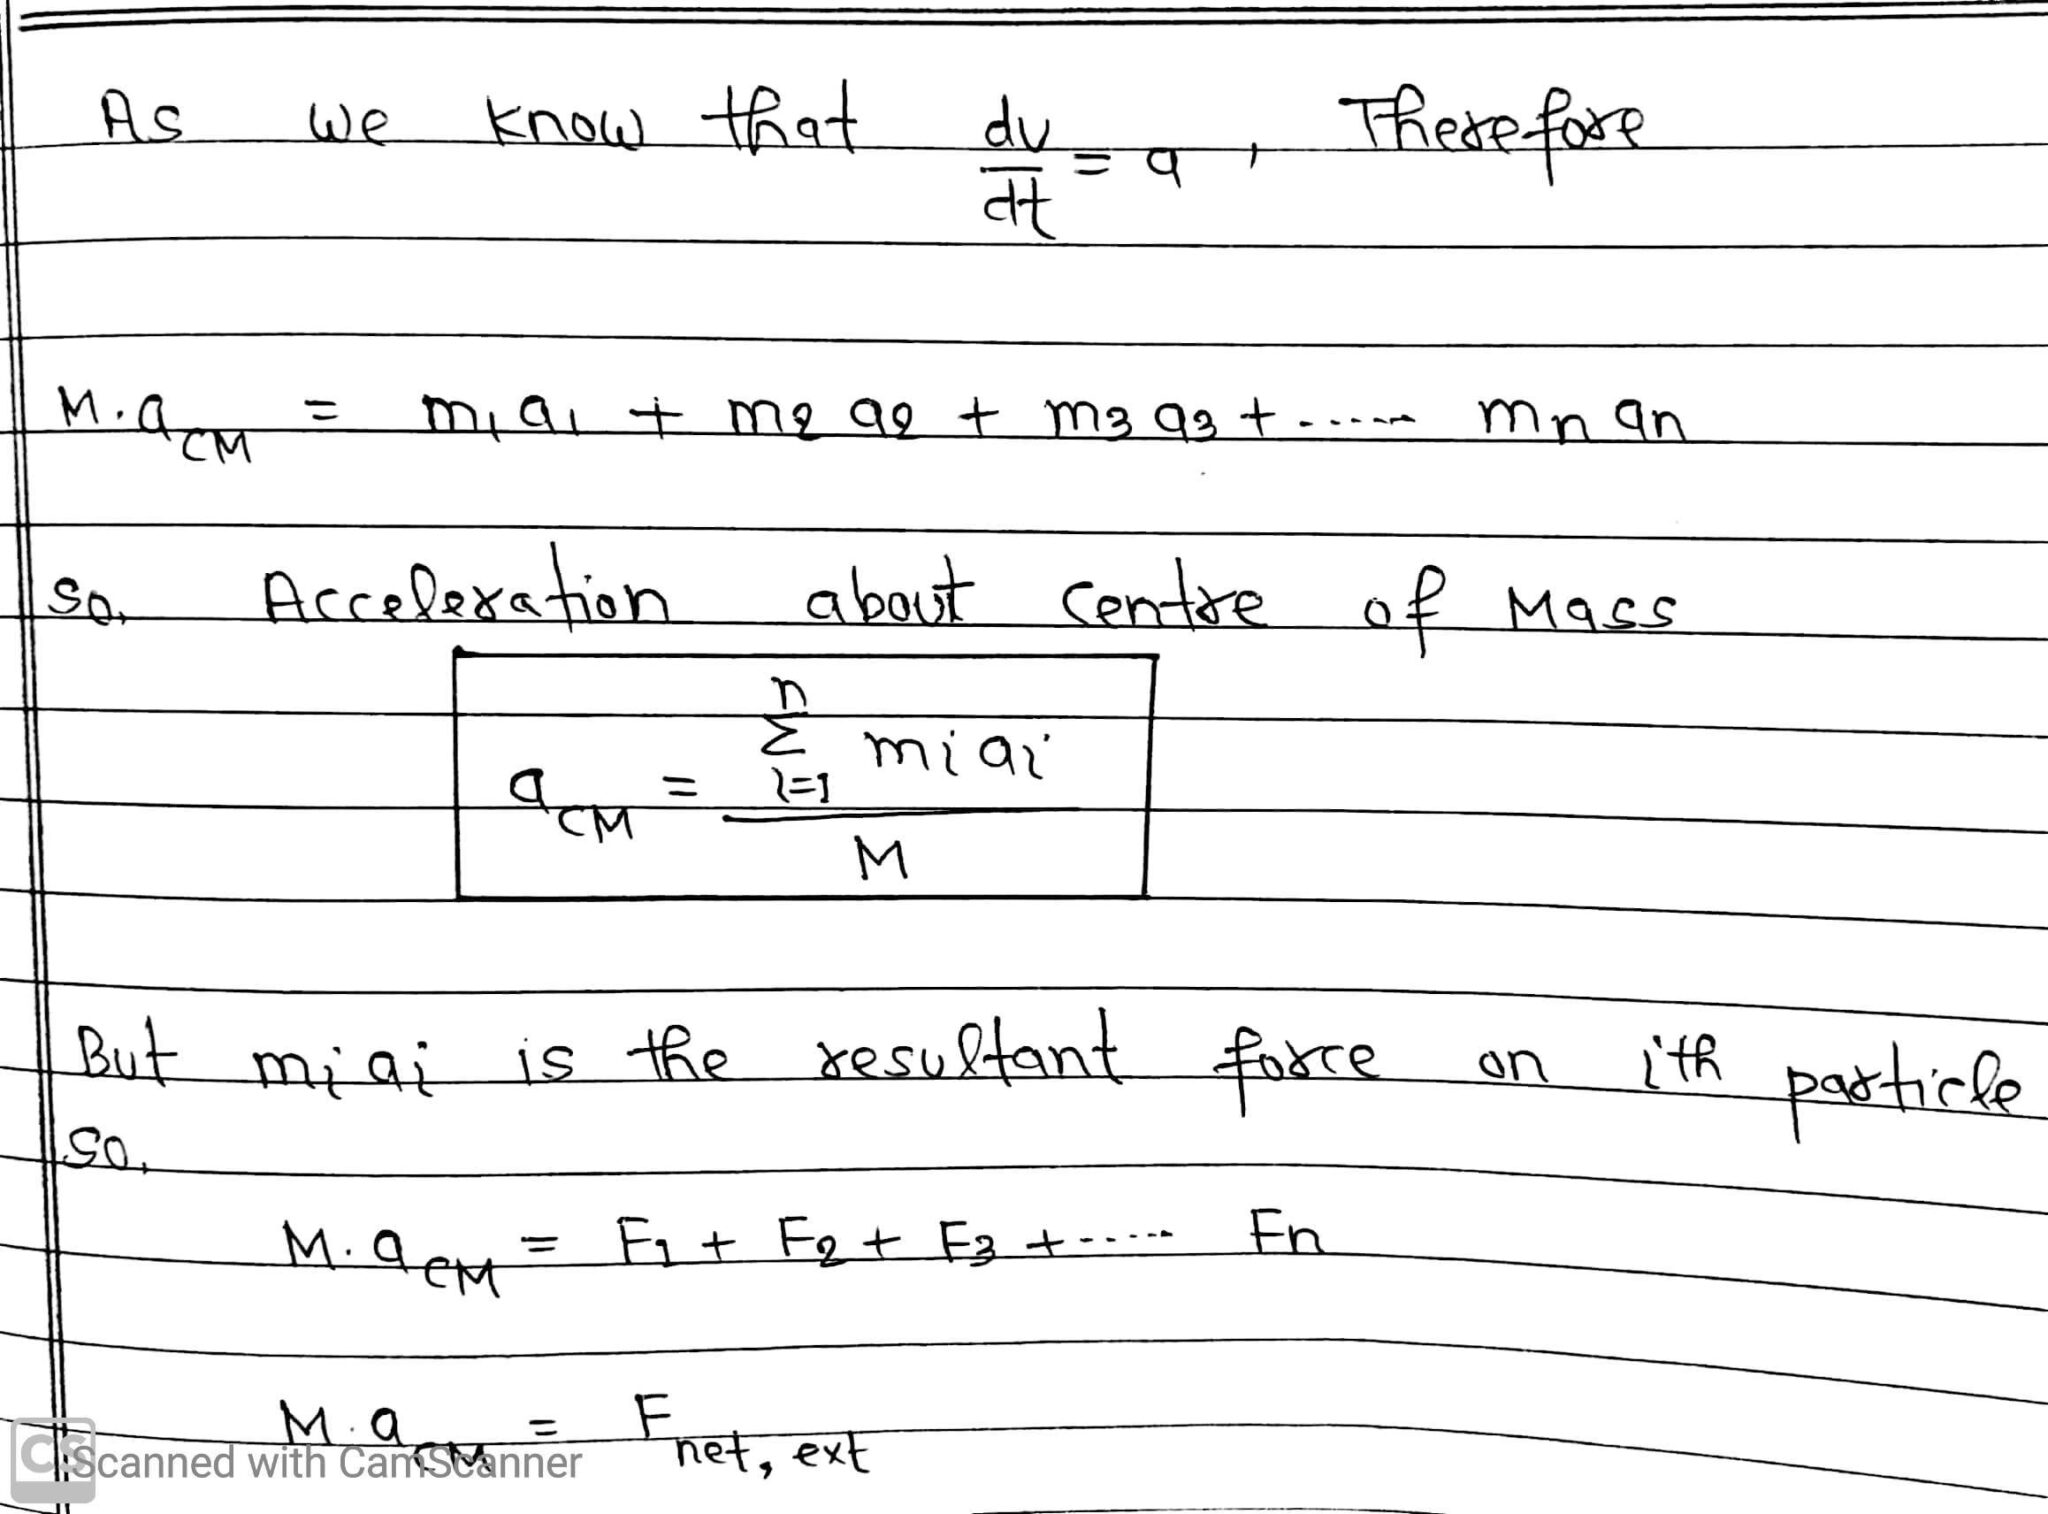 As we know that dv/dt = a , Therefore
M.a_CM = m1 a1 + m2 a2 + m3 a3 + ...... mn an
so, Acceleration about centre of Mass
a_CM = n Σ i=1 mi ai / M
But mi ai is the resultant force on ith particle
so,
M.a_CM = F1 + F2 + F3 + ...... Fn
M.a_CM = F net, ext
CS Scanned with CamScanner